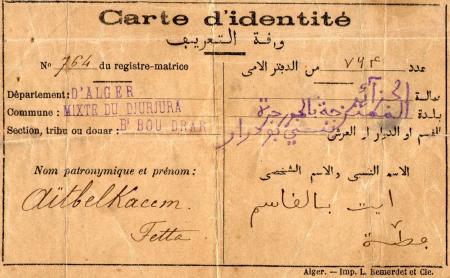 Carte d'identité
ورقة التعريف
No 764 du registre-matrice
عدد ٧٦٤ من الدفتر الامى
Département: D'ALGER
عمالة الجزائر
Commune : MIXTE DU DJURJURA
بلدة
Section, tribu ou douar : Bi BOU DRAR
القسم او الدوار او العرش
Nom patronymique et prénom :
الاسم النسبى والاسم الشخصى
Aïtbelkacem
ايت بالقاسم
Fetta
فطة
Alger. — Imp. L. Remordet et Cie.